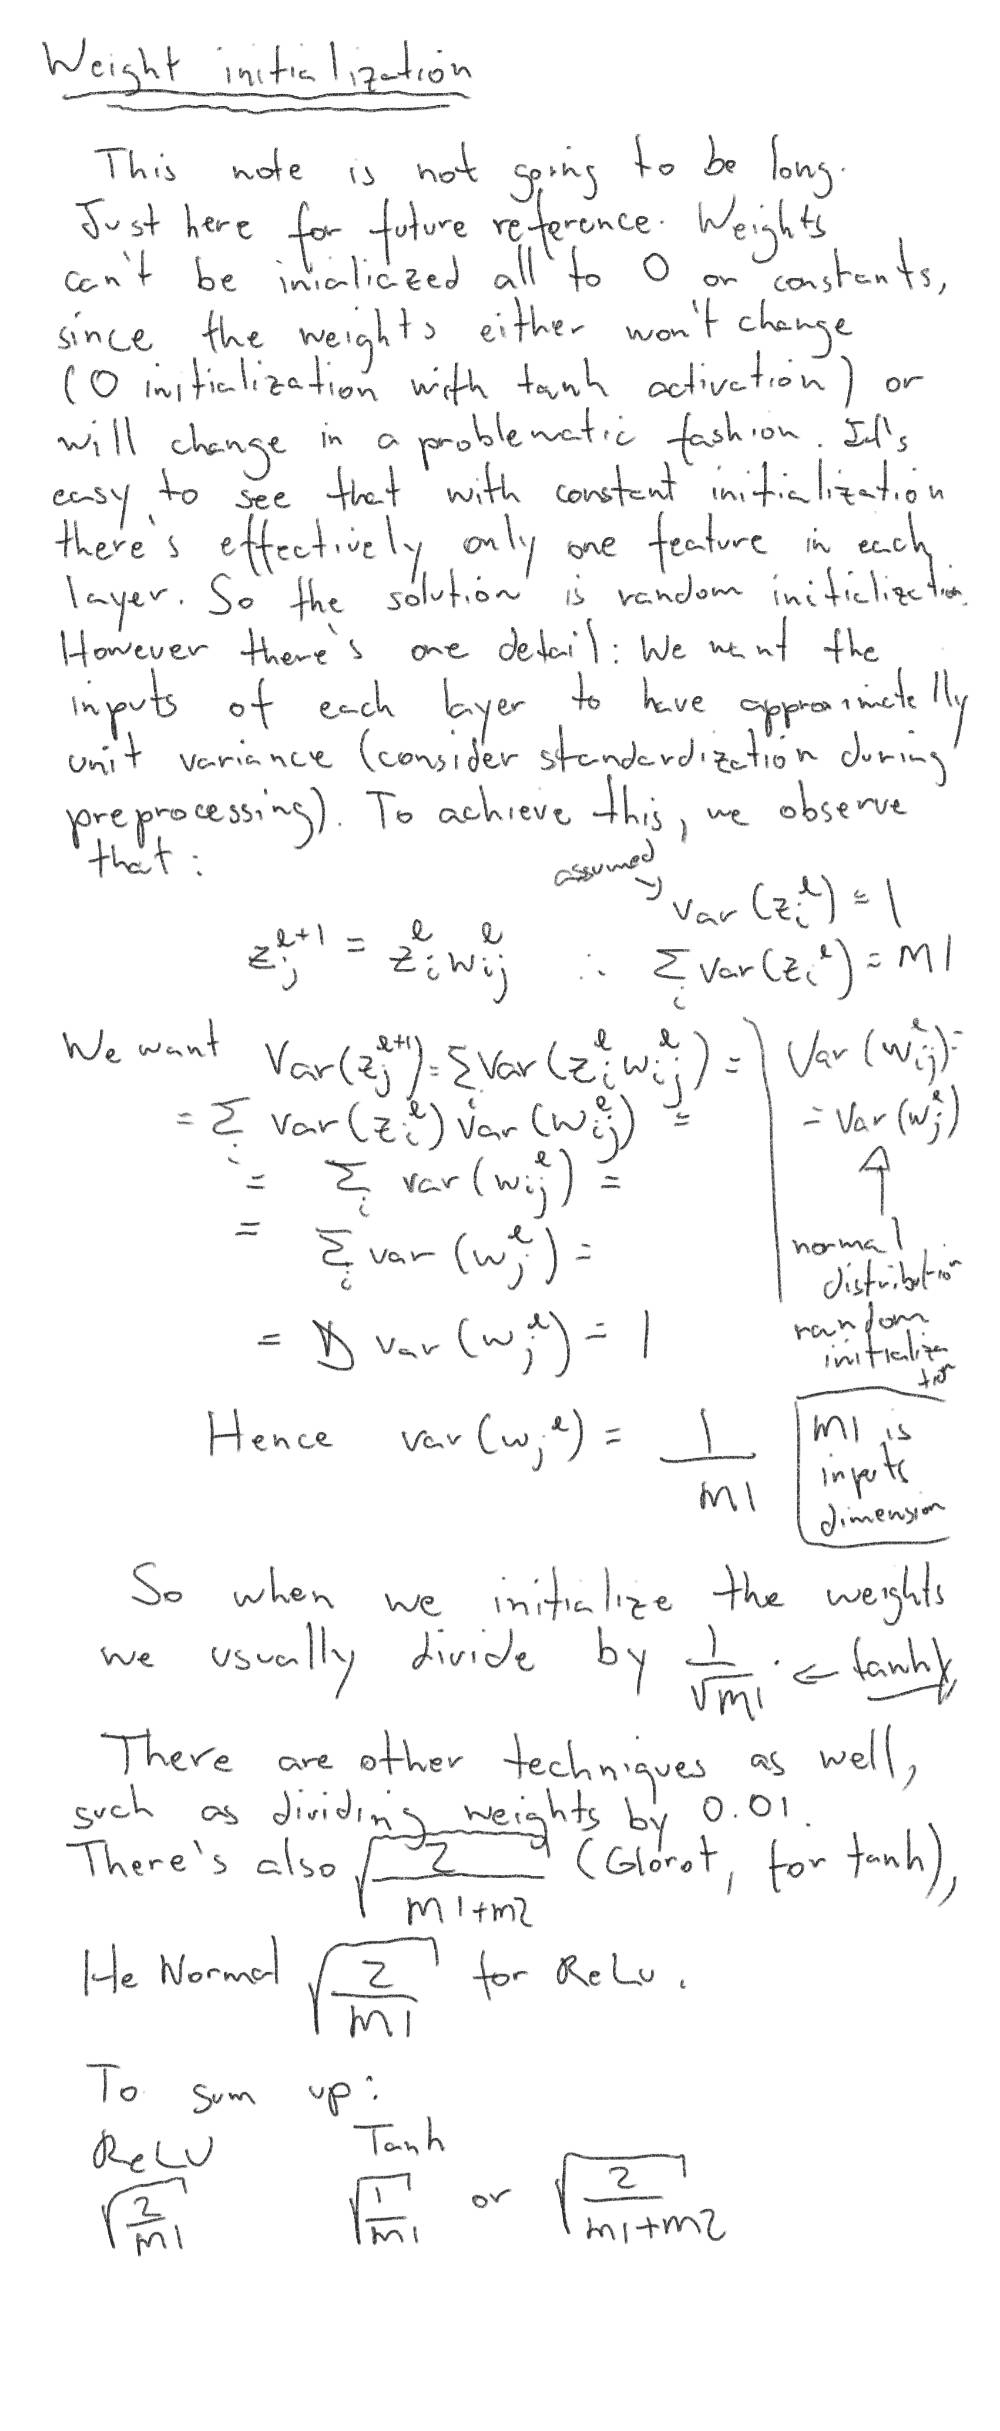 Weight initialization
This note is not going to be long.
Just here for future reference. Weights
can't be inialiazed all to 0 or constants,
since the weights either won't change
(0 initialization with tanh activation) or
will change in a problematic fashion. It's
easy to see that with constant initialization
there's effectively only one feature in each
layer. So the solution is random initialization.
However there's one detail: We want the
inputs of each layer to have approximatelly
unit variance (consider standardization during
preprocessing). To achieve this, we observe
that:
assumed → var(z_i^l) = 1
z_j^{l+1} = z_i^l w_{ij}^l ∴ Σ_i var(z_i^l) = m1
We want Var(z_j^{l+1}) = Σ_i Var(z_i^l w_{ij}^l) =
= Σ_i var(z_i^l) var(w_{ij}^l) =
= Σ_i var(w_{ij}^l) =
= Σ_i var(w_j^l) =
= var(w_j^l) = 1
Var(w_{ij}^l) =
= Var(w_j^l)
↑
normal
distribution
random
initializa
tion
Hence var(w_j^l) = 1/m1
m1 is
inputs
dimension
So when we initialize the weights
we usually divide by 1/√m1. ← tanh
There are other techniques as well,
such as dividing weights by 0.01.
There's also √(2/(m1+m2)) (Glorot, for tanh),
He Normal √(2/m1) for ReLu.
To sum up:
ReLU Tanh
√(2/m1) √(1/m1) or √(2/(m1+m2))